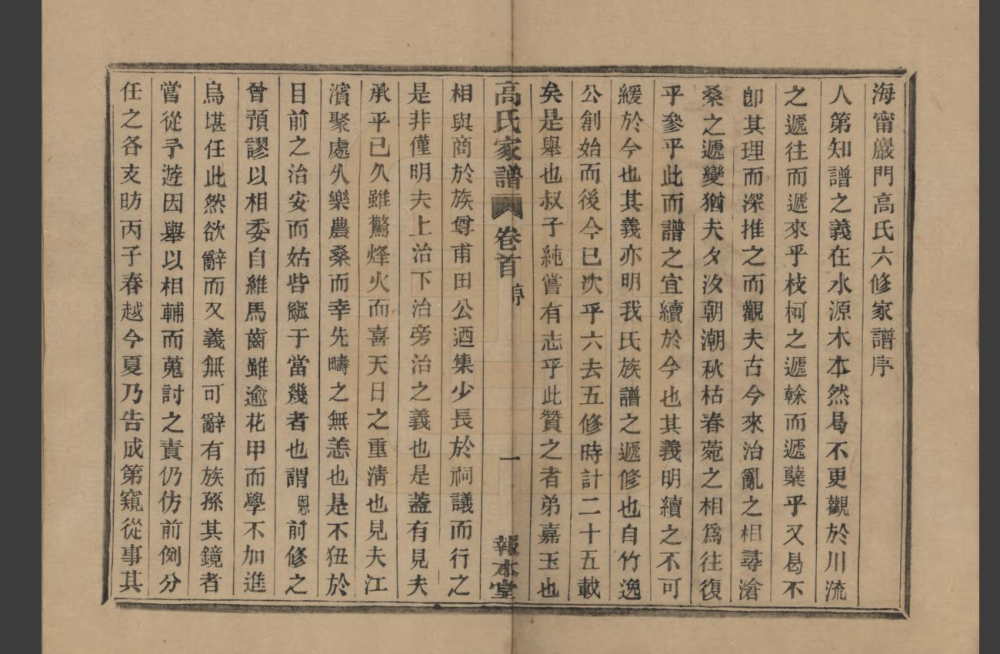 海甯嚴門高氏六修家譜序
人第知譜之義在水源木本然曷不更觀於川流
之遞往而遞來乎枝柯之遞榦而遞櫱乎又曷不
卽其理而深推之而觀夫古今來治亂之相尋滄
桑之遞變猶夫夕汐朝潮秋枯春菀之相爲往復
乎參乎此而譜之宜續於今也其義明續之不可
緩於今也其義亦明我氏族譜之遞修也自竹逸
公創始而後今已次乎六去五修時計二十五載
矣是舉也叔子純嘗有志乎此贊之者弟嘉玉也
高氏家譜 卷首 序 一 報本堂
相與商於族尊甫田公迺集少長於祠議而行之
是非僅明夫上治下治旁治之義也是蓋有見夫
承平已久雖驚烽火而喜天日之重淸也見夫江
濱聚處久樂農桑而幸先疇之無恙也是不狃於
目前之治安而姑呰窳于當幾者也謂恩前修之
曾預謬以相委自維馬齒雖逾花甲而學不加進
烏堪任此然欲辭而又義無可辭有族孫其鏡者
嘗從予遊因舉以相輔而蒐討之責仍仿前例分
任之各支昉丙子春越今夏乃告成第窺從事其